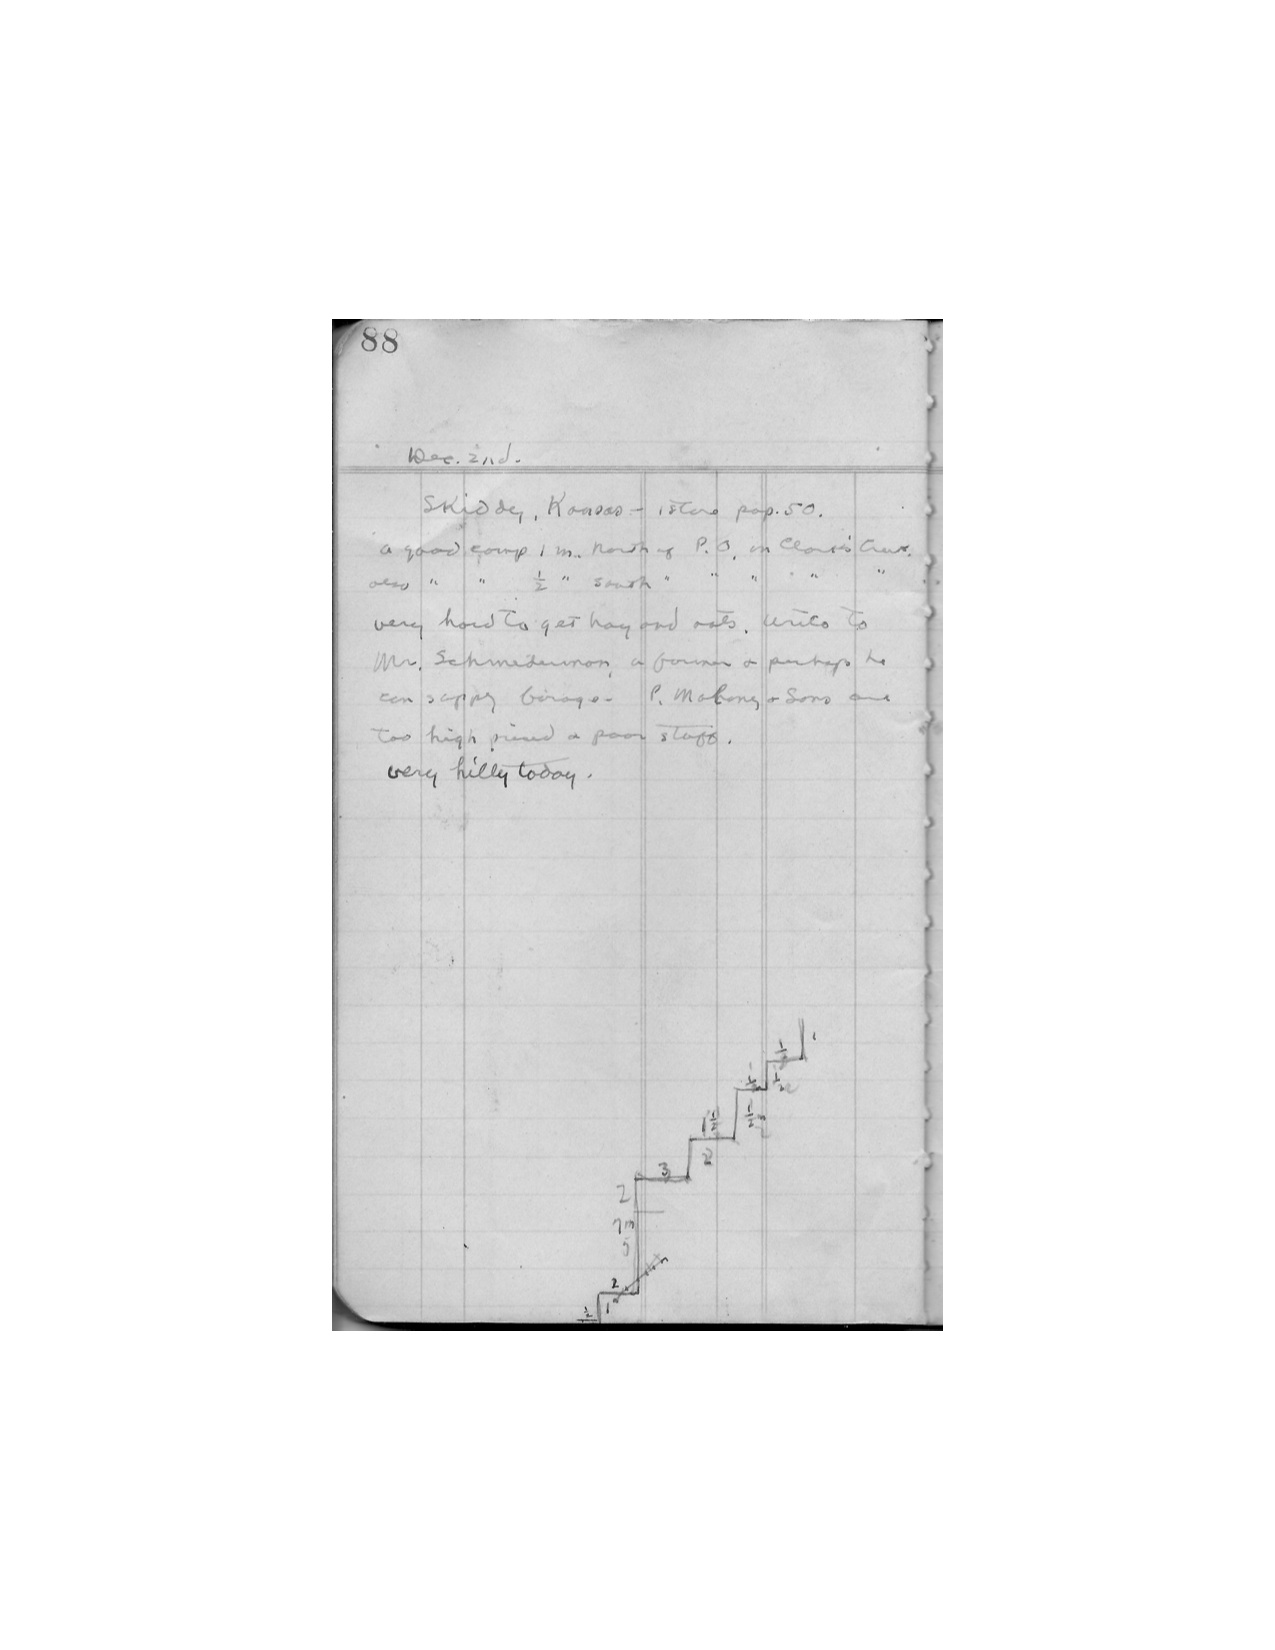 88
Dec. 2nd.
Skiddy, Kansas - 1 store pop. 50.
a good camp 1 m. north of P.O. on Clark's Creek.
also " " ½ " south " " " " "
very hard to get hay and oats. Write to
Mr. Schmederman, a farmer & perhaps he
can supply forage - P. Mahoney & Sons are
too high priced & poor stuff.
very hilly today.
1
½
½
½
1½
½
2
3
2
7 m
5
2
1
½